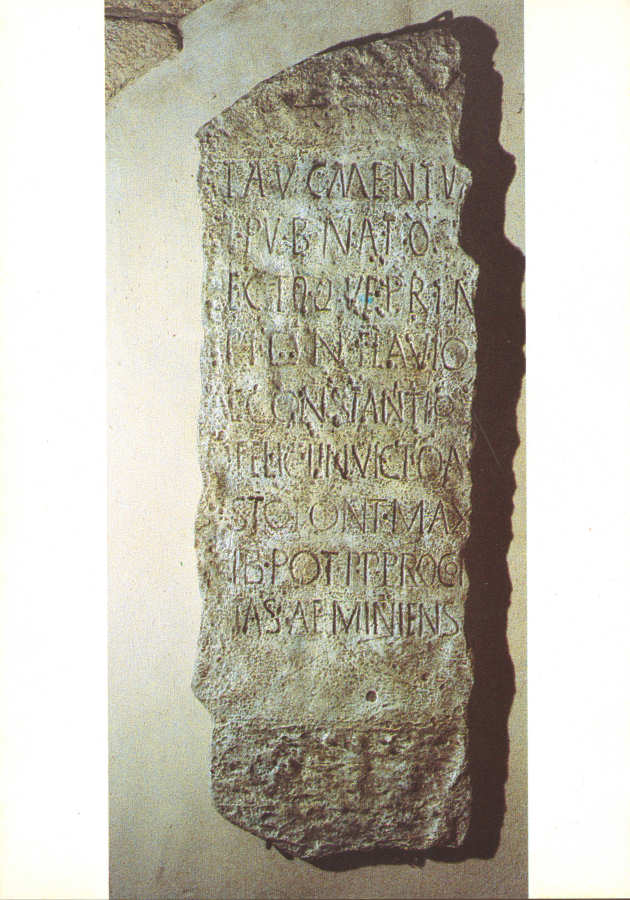 TAVGMENTVM
PVB NATO
ECTOQVE PRIN
PI D N FLAVIO
CONSTANTIO
FELICI INVICTO A
STO PONT MAX
IB POT P P PROCO
TAS AEMINIENS